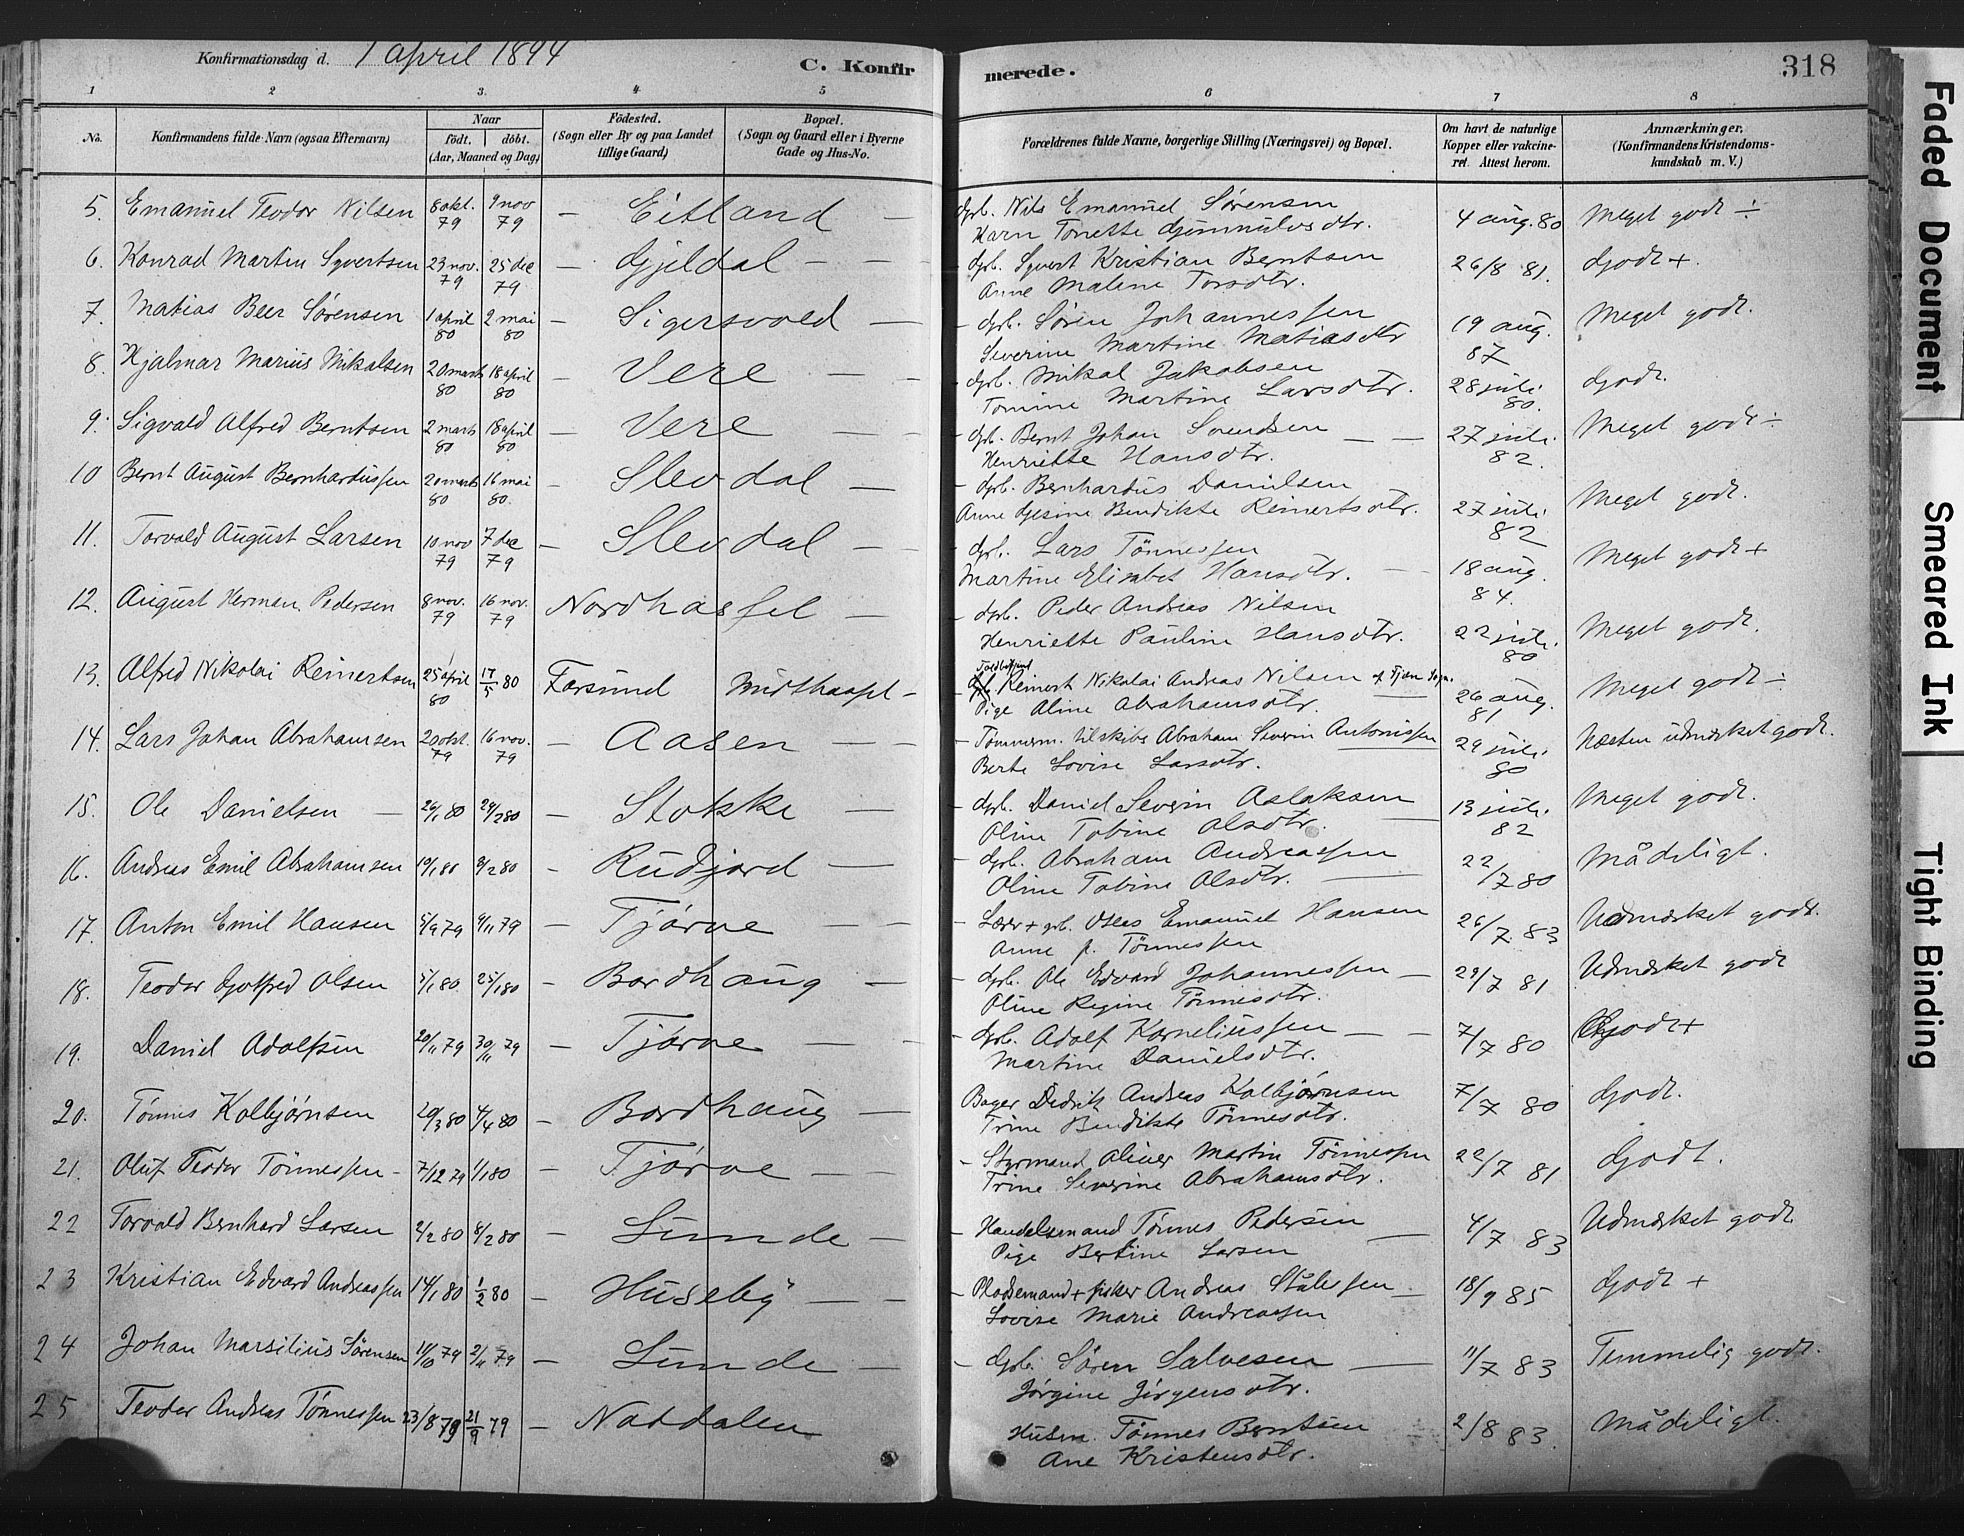 Konfirmationsdag d. 1 april 1894
C. Konfir
merede.
318
1 2 3. 4 5 6 7 8
No. Konfirmandens fulde Navn (ogsaa Efternavn) Naar født. døbt. (Aar, Maaned og Dag) Fødested. (Sogn eller By og paa Landet tillige Gaard) Bopæl. (Sogn og Gaard eller i Byerne Gade og Hus-No.
Forældrenes fulde Navne, borgerlige Stilling (Næringsvei) og Bopæl. Om havt de naturlige Kopper eller vakcineret. Attest herom. Anmærkninger. (Konfirmandens Kristendomskundskab m. V.)
5. Emanuel Teodor Nilsen 8 okt. 79 9 nov 79 – Eitland – Grb. Nils Emanuel Sørensen 4 aug. 80 Meget godt ÷
Karn Tonette
6. Konrad Martin Syvertsen 23 nov. 79 25 dec 79 – Gjeldal – – Grb. Syvert Kristian Berntsen 26/8 81. Godt +.
Anne Maline Torsdtr.
7. Matias Beer Sørensen 1 april 80 2 mai 80 – Sigersvold – – Grb. Søren Johannessen 19 aug. 87 Meget godt.
Severine Martine Matiasdtr
8. Hjalmar Marius Mikalsen 20 marts 80 18 april 80 – Vere – – Grb. Mikal Jakobsen 28 juli 80. Godt.
Tomine Martine Larsdtr.
9. Sigvald Alfred Berntsen 2 marts 80 18 april 80 – Vere – – Grb. Bernt Johan Svendsen – – 27 juli 82. Meget godt ÷
Henriette Hansdtr.
10 Bernt August Bernhardussen 20 marts 80 16 mai 80. – Slevdal – – Grb. Bernhardus Danielsen 27 juli 82 Meget godt.
Anne Gjesine Bendikte Reinertsdtr.
11. Torvald August Larsen 10 nov 79 7 dec 79 – Slevdal – – Grb. Lars Tønnessen 18 aug. 84. Meget godt +
Martine Elisabet Hansdtr. –
12. August Herman Pedersen 8 nov. 79 16 nov. 79 Nordhassel – – Grb. Peder Andreas Nilsen 22 juli 80 Meget godt.
Henriette Pauline Hansdtr.
13. Alfred Nikolai Reinertsen 25 april 80 17/5 80 Farsund Midthassel – Reinert Nikolai Andreas Nilsen 26 aug. 81 Meget godt ÷
Pige Aline Abrahamsdtr.
14. Lars Johan Abrahamsen 20 okt. 79 16 nov. 79 – Aasen – – Tømmerm. tilskibs Abraham Severin Antonissen 29 juli 80 Næsten udmærket godt.
Berte Lovise Larsdtr.
15. Ole Danielsen – 26/1 80 29/2 80 – Stokke – – Grb. Daniel Severin Aslaksen 13 juli 82 Meget godt.
Oline Tobine Olsdtr.
16. Andreas Emil Abrahamsen 10/1 80 8/2 80 – Rudjord – – Grb. Abraham Andreassen 22/7 80 Mådeligt.
Oline Tobine Olsdtr.
17. Anton Emil Hansen 5/9 79 9/11 79 – Tjørve – – Lærer + grb. Oleas Emanuel Hansen 26/7. 83 Udmærket godt.
Anne f. Tønnessen
18. Teodor Gotfred Olsen 5/1 80. 25/1 80 – Bordhaug – – Grb. Ole Edvard Johannessen – 29/7 81 Udmærket godt
Oline Regine Tønnesdtr.
19. Daniel Adolfsen 20/11 79 30/11 79 – Tjørve – – Grb. Adolf Korneliussen – – 7/7 80 Godt +
Martine Danielsdtr.
20. Tønnes Kolbjørnsen 20/3 80 4/4 80 – Bordhaug – Bager Didrik Andreas Kolbjørnsen 7/7 80 Godt.
Trine Bendikte Tønnesdtr.
21. Oluf Teodor Tønnessen – 7/12 79 1/1 80 – Tjørve – – Styrmand Oliver Martin Tønnessen 22/7 81 Godt.
Trine Severine Abrahamsdtr.
22 Torvald Bernhard Larsen 2/2 80 8/2 80 – Sunde – – Handelsmand Tønnes Pedersen 4/7 83 Udmærket godt
Pige Bertine Larsen
23 Kristian Edvard Andreassen 14/1 80 1/2 80 – Huseby – – Pladsemand + fisker Andreas Stålessen – 18/9 85 Godt +
Lovise Marie Andreassen
24 Johan Marsilius Sørensen 14/10 79 2/11 79 – Sunde – – Grb. Søren Salvesen – 11/7 83 Temmelig godt.
Jørgine Jørgensdtr.
25 Teodor Andreas Tønnessen 23/8 79 21/9 79 – Naddalen Husm. Tønnes Berntsen 2/8 83. Mådeligt.
Ane Kristensdtr.
Faded Document
Smeared Ink
Tight Binding